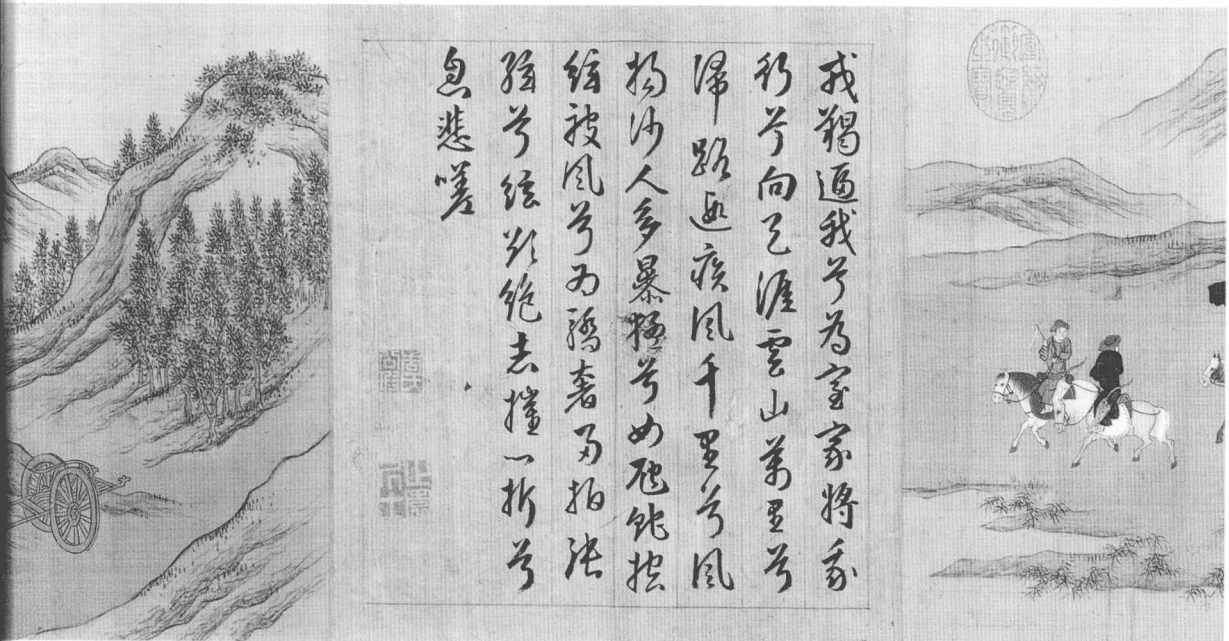 戎羯逼我兮為室家將我
行兮向天涯雲山萬里兮
歸路遐疾風千里兮風
揚沙人多暴猛兮如虺蛇控
絃被風兮為驕奢兩拍張
絃兮絃欲絕志摧心折兮
息悲嗟